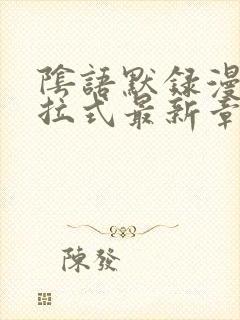 陰語默録漫
拉式最新章
陳發